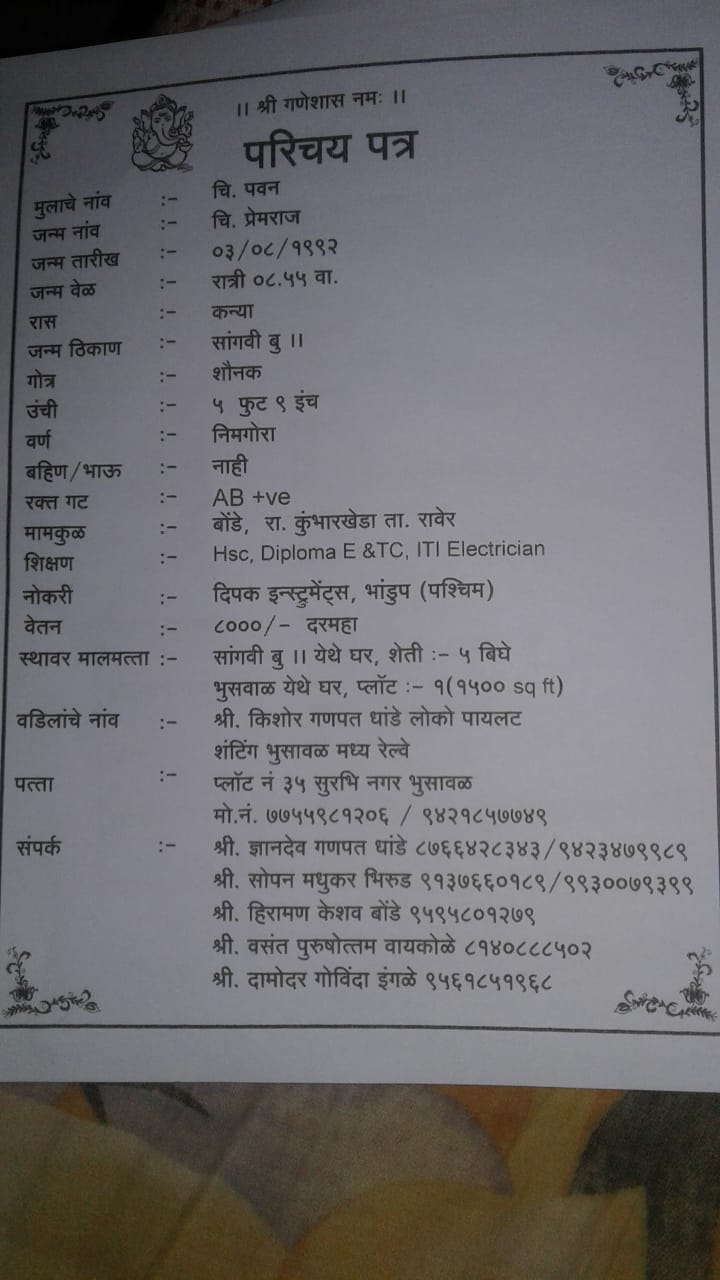 ।। श्री गणेशास नमः ।।
परिचय पत्र
मुलाचे नांव :- चि. पवन
जन्म नांव :- चि. प्रेमराज
जन्म तारीख :- ०३/०८/१९९२
जन्म वेळ :- रात्री ०८.५५ वा.
रास :- कन्या
जन्म ठिकाण :- सांगवी बु ।।
गोत्र :- शौनक
उंची :- ५ फुट ९ इंच
वर्ण :- निमगोरा
बहिण/भाऊ :- नाही
रक्त गट :- AB +ve
मामकुळ :- बोंडे, रा. कुंभारखेडा ता. रावेर
शिक्षण :- Hsc, Diploma E &TC, ITI Electrician
नोकरी :- दिपक इन्स्ट्रुमेंट्स, भांडुप (पश्चिम)
वेतन :- ८०००/- दरमहा
स्थावर मालमत्ता :- सांगवी बु ।। येथे घर, शेती :- ५ बिघे
भुसवाळ येथे घर, प्लॉट :- १(१५०० sq ft)
वडिलांचे नांव :- श्री. किशोर गणपत धांडे लोको पायलट
शंटिंग भुसावळ मध्य रेल्वे
पत्ता :- प्लॉट नं ३५ सुरभि नगर भुसावळ
मो.नं. ७७५५९८१२०६ / ९४२१८५७७४९
संपर्क :- श्री. ज्ञानदेव गणपत धांडे ८७६६४२८३४३/९४२३४७९९८९
श्री. सोपन मधुकर भिरुड ९१३७६६०१८९/९९३००७९३९९
श्री. हिरामण केशव बोंडे ९५९५८०१२७९
श्री. वसंत पुरुषोत्तम वायकोळे ८१४०८८८५०२
श्री. दामोदर गोविंदा इंगळे ९५६१८५१९६८